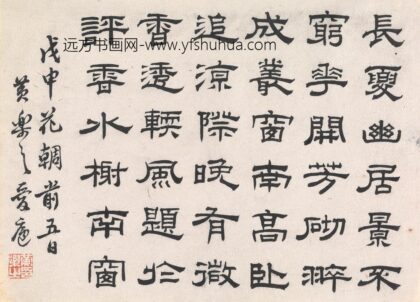 長夏幽居景不
窮華開芳砌翠
成叢窗南高臥
追涼際晚有微
香透輭風題於
評水榭南窗
戊申花朝前五日
黄樂之愛廬
远方书画网-www.yfshuhua.com